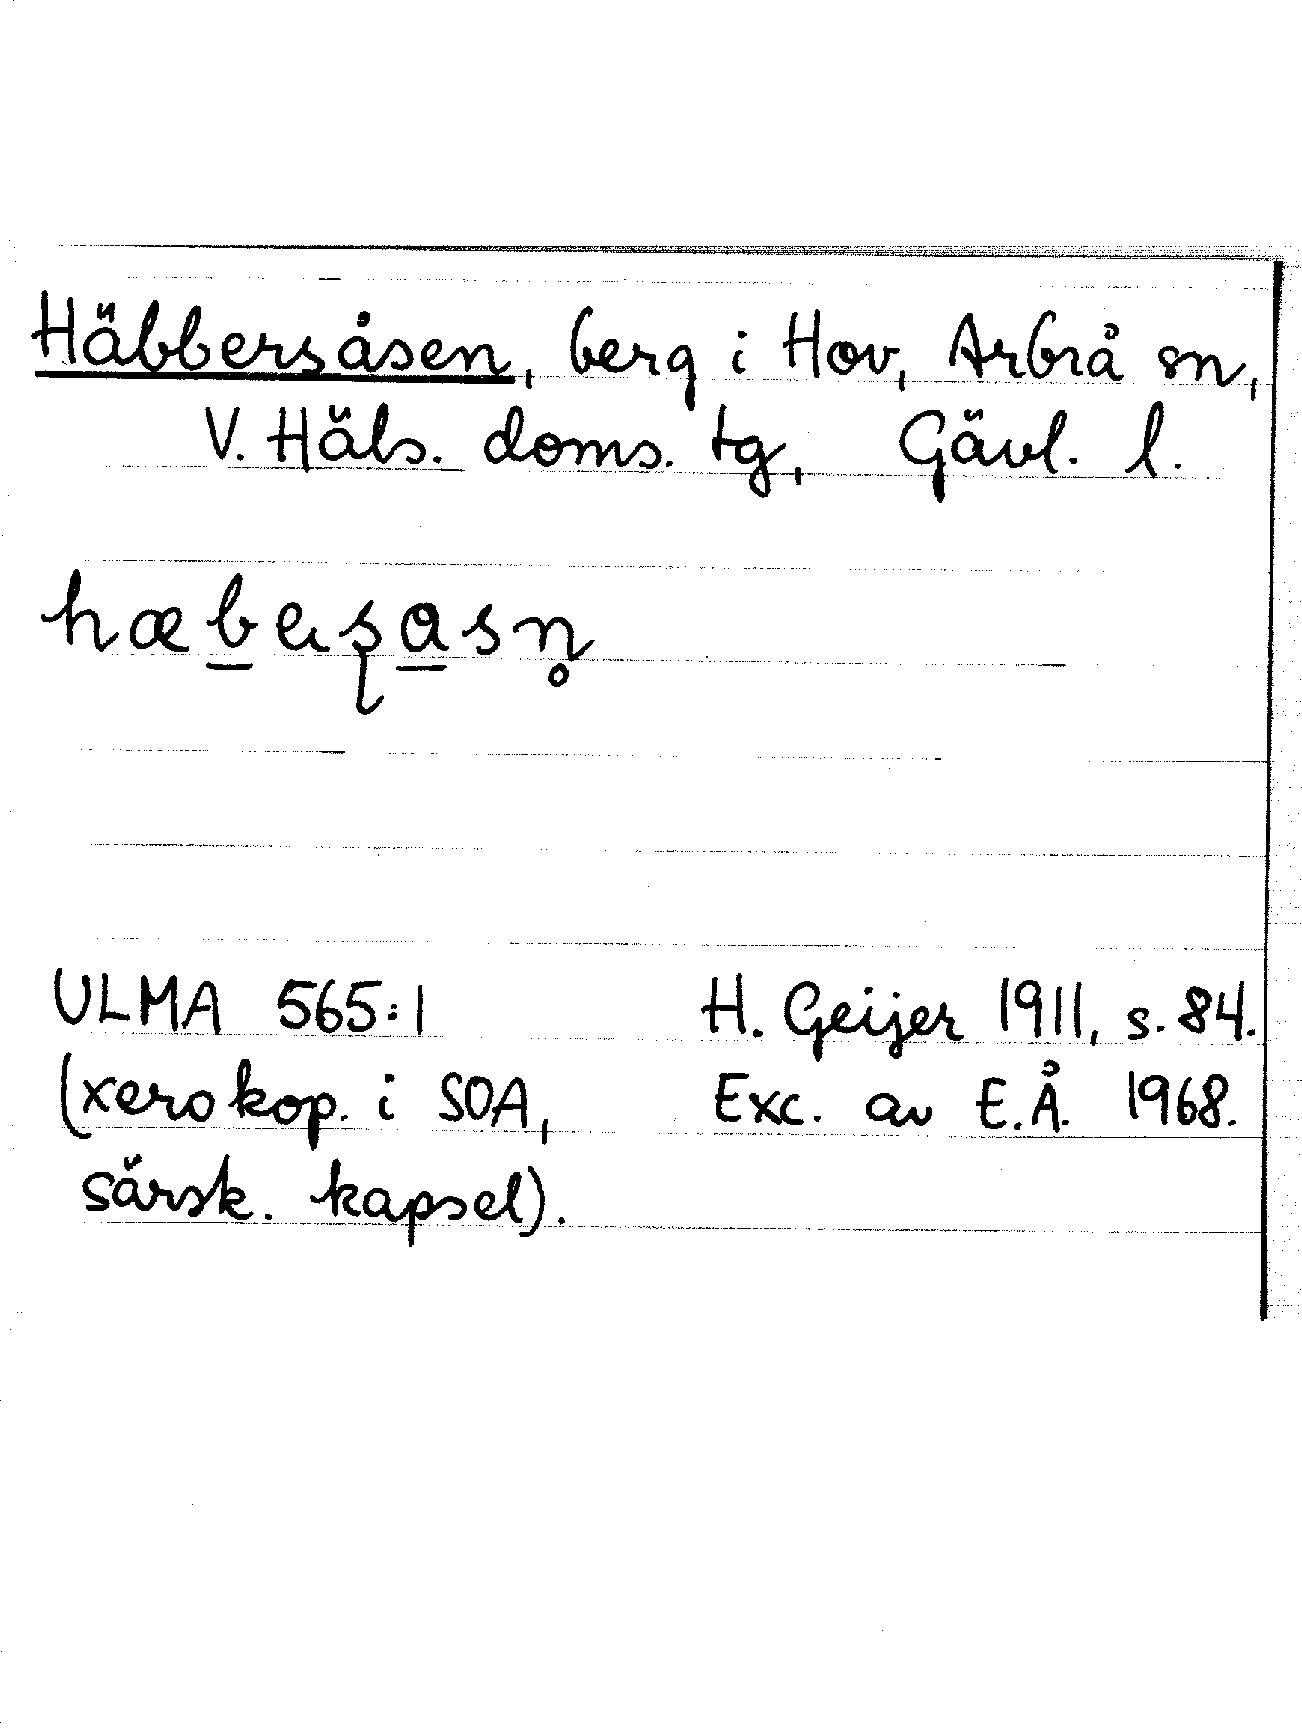 Häbbersåsen, berg i Hov, Arbrå sn,
V. Häls. doms. tg, Gävl. l.
hæb̲eʂa̲sn̥
ULMA 565:1 H. Geijer 1911, s. 84.
(xerokop. i SOA, Exc. av E.Å. 1968.
särsk. kapsel).